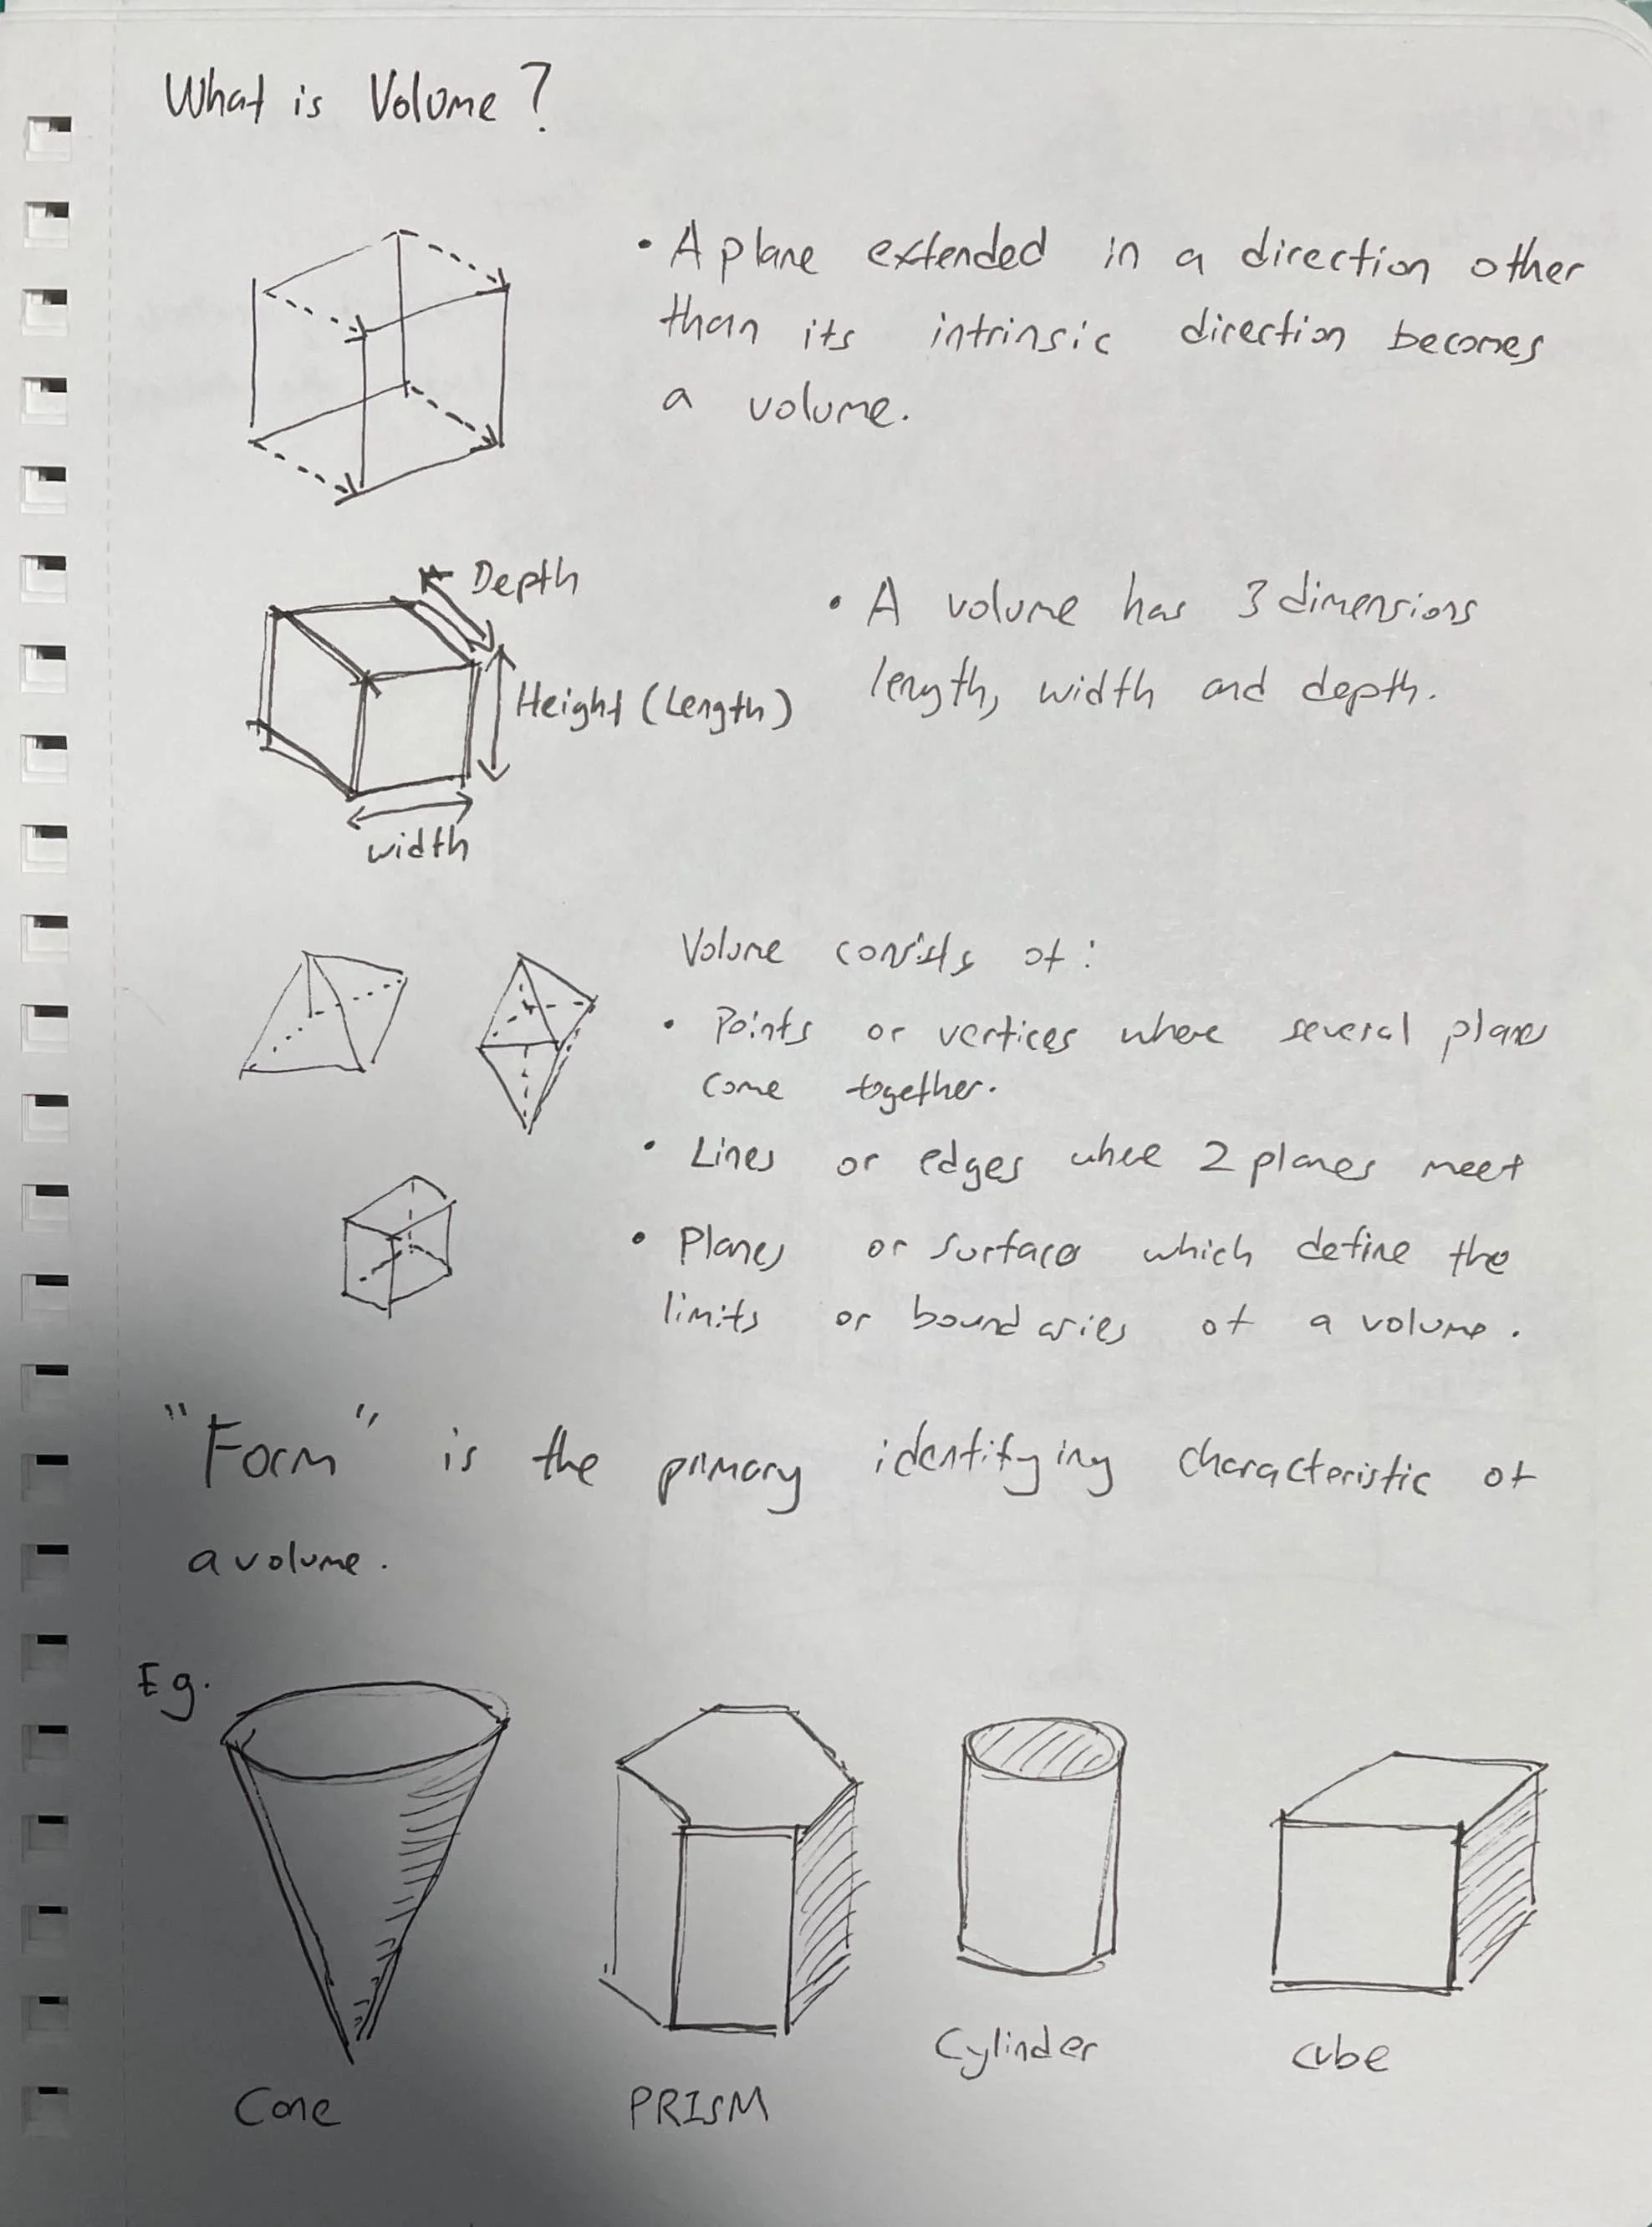 What is Volume?
• A plane extended in a direction other
than its intrinsic direction becomes
a volume.
Depth
Height (Length)
width
• A volume has 3 dimensions
length, width and depth.
Volume consists of:
• Points or vertices where several planes
come together.
• Lines or edges where 2 planes meet
• Planes or surface which define the
limits or boundaries of a volume.
"Form" is the primary identifying characteristic of
a volume.
Eg.
Cone
PRISM
Cylinder
cube